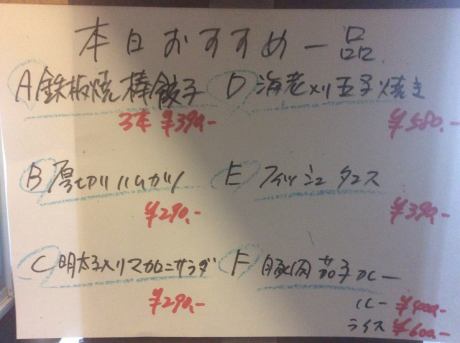 本日おすすめ一品
A 鉄板焼棒餃子
3本 ¥390.-
B 厚切りハムカツ
¥290.-
C 明太子入りマカロニサラダ
¥290.-
D 海老入り玉子焼き
¥580.-
E フィッシュタコス
¥390.-
F 豚肉茄子カレー
ルー ¥400.-
ライス ¥600.-